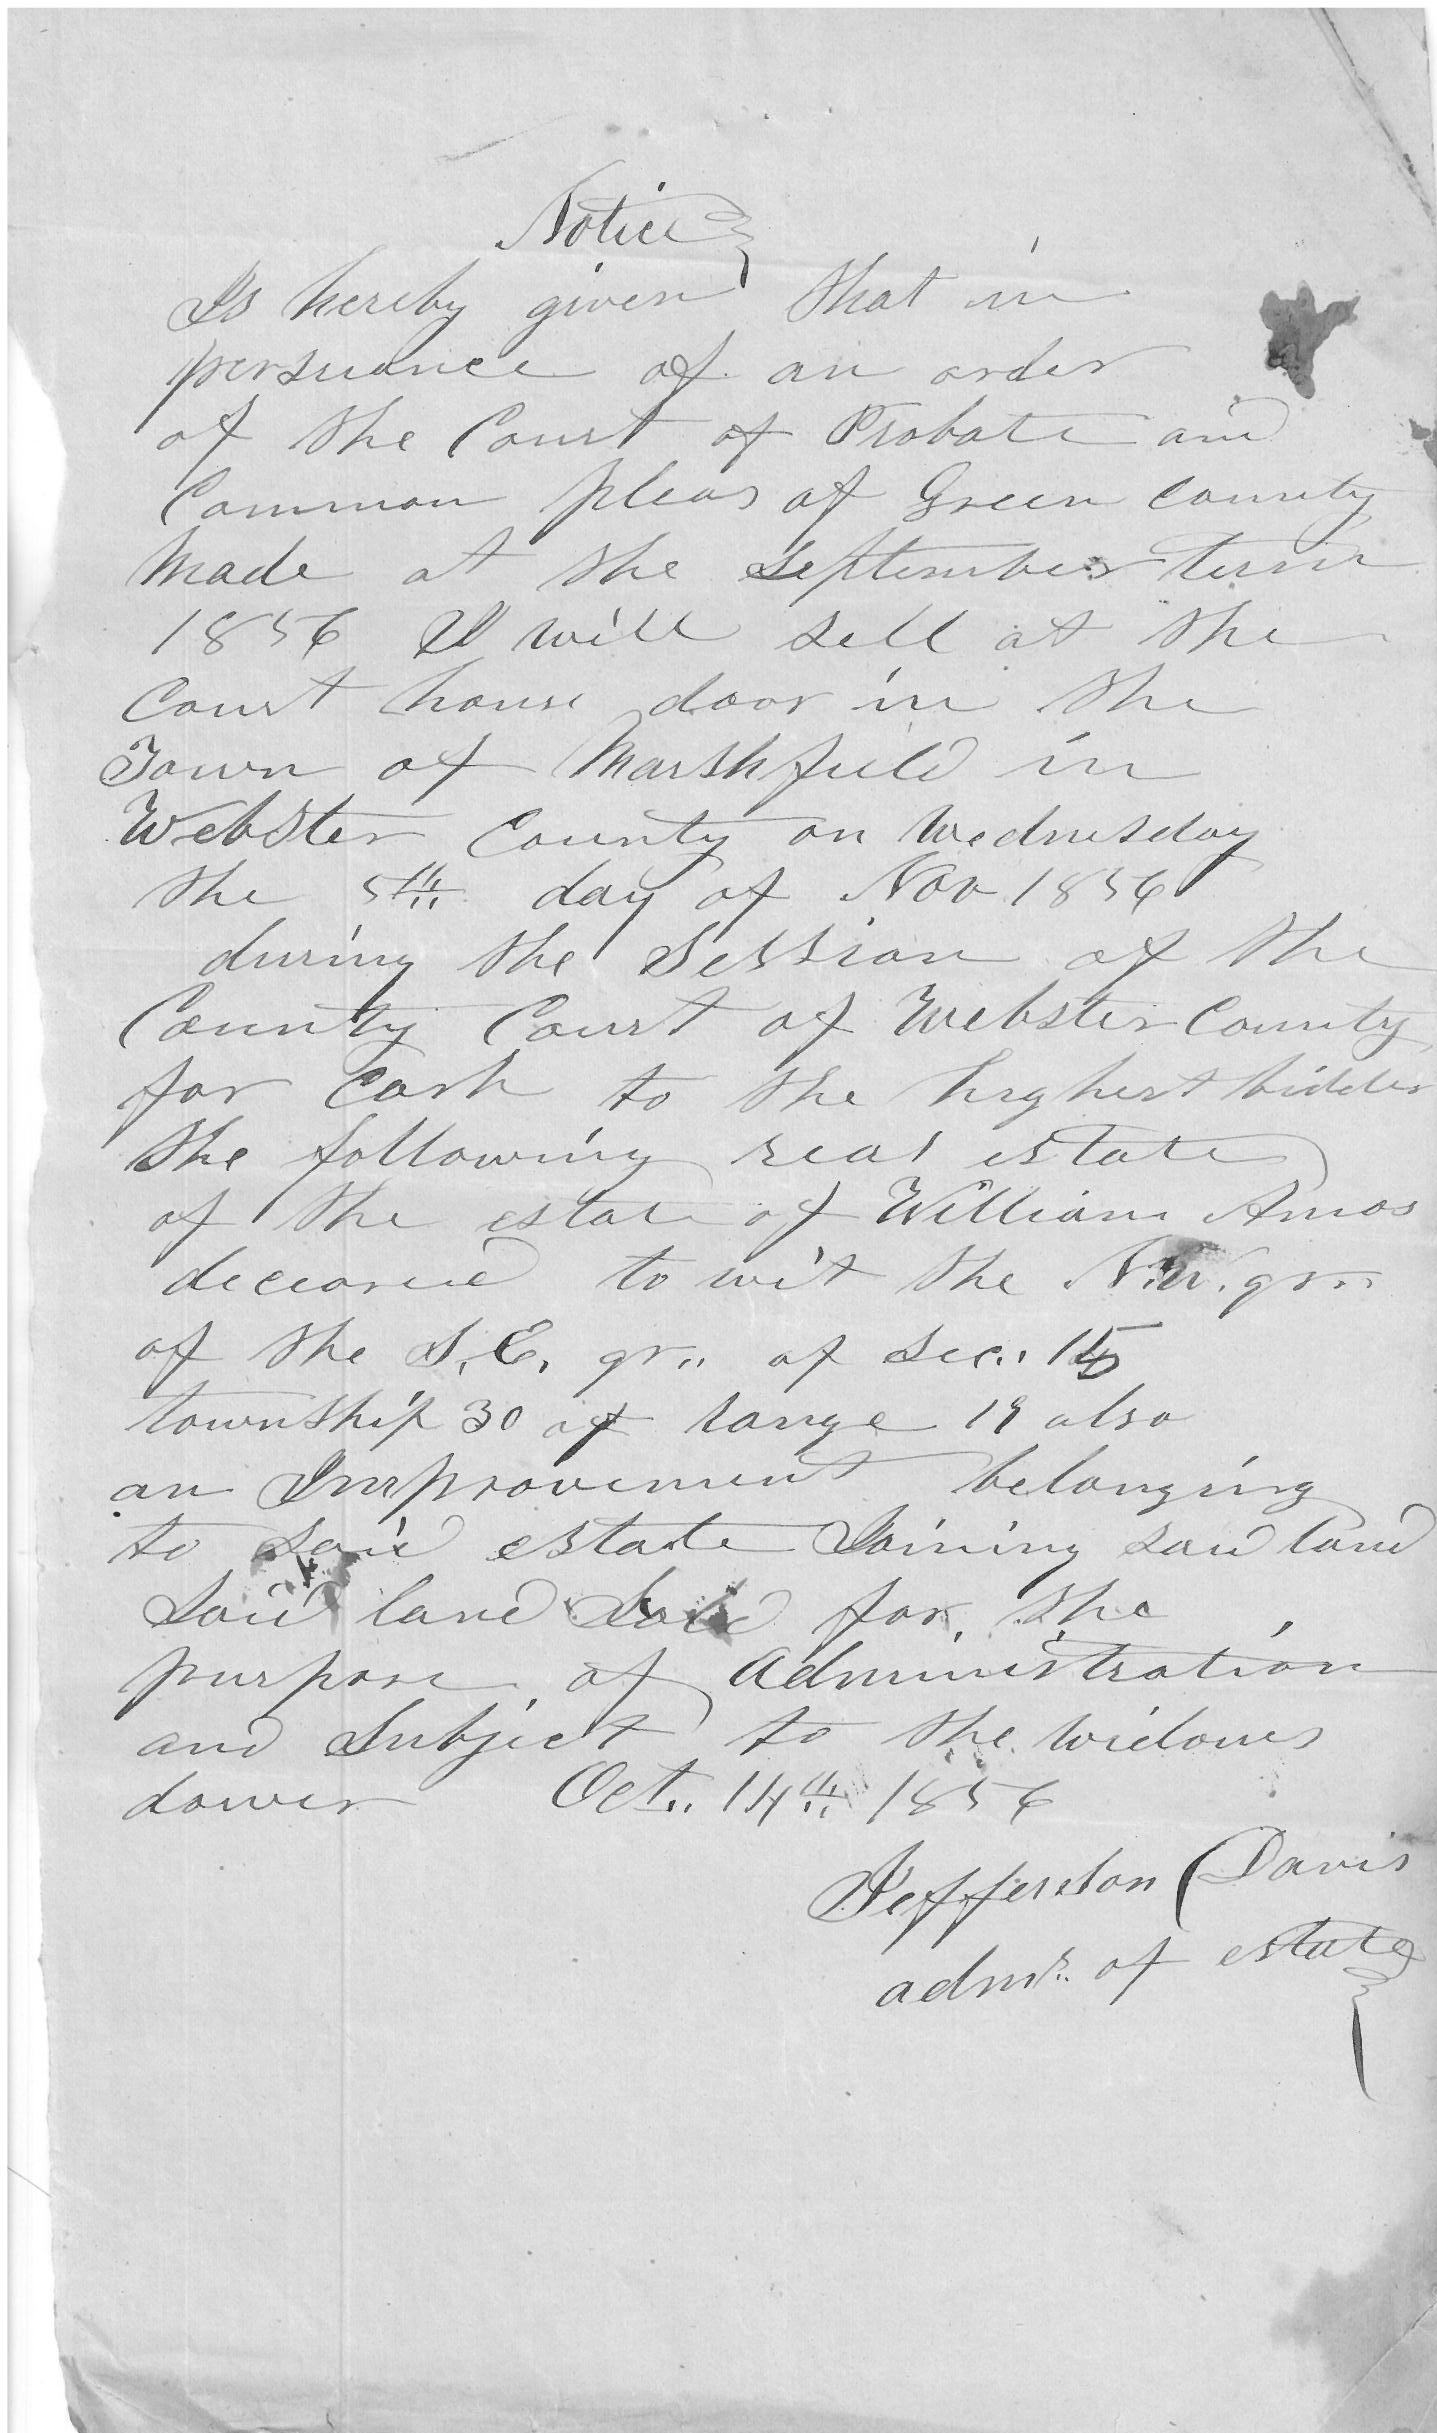 Notice
Is hereby given that in
persuance of an order
of the Court of Probate and
Common pleas of Green County
Made at the September term
1856 I will sell at the
Court house door in the
Town of Marshfield in
Webster County on Wednesday
the 5th day of Nov 1856
during the Session of the
County Court of Webster County
for Cash to the highest bidder
the following real estate
of the estate of William Amos
deceased to wit the N.W. qr..
of the S.E. qr.. of Sec.. 15
township 30 of range 19 also
an Improvement belonging
to said estate Joining said land
Said land Sold for the
purpose of Administration
and Subject to the widows
dower Oct.. 14th 1856
Jefferson Davis
admr. of estate